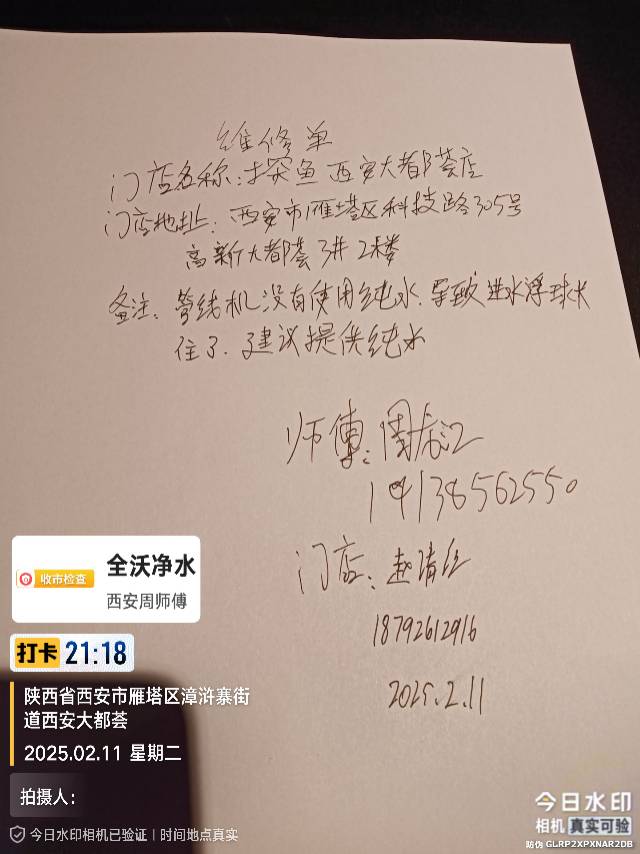 维修单
门店名称:探鱼西安大都荟店
门店地址:西安市雁塔区科技路305号
高新大都荟3井2楼
备注:管线机没有使用纯水.导致进水浮球卡
住了.建议提供纯水
师傅:周
门店:赵
18792612916
2025.2.11
收市检查
全沃净水
西安周师傅
打卡 21:18
陕西省西安市雁塔区漳浒寨街
道西安大都荟
2025.02.11 星期二
拍摄人:
今日水印相机已验证 | 时间地点真实
今日水印
相机 真实可验
防伪 GLRP2XPXNAR2DB